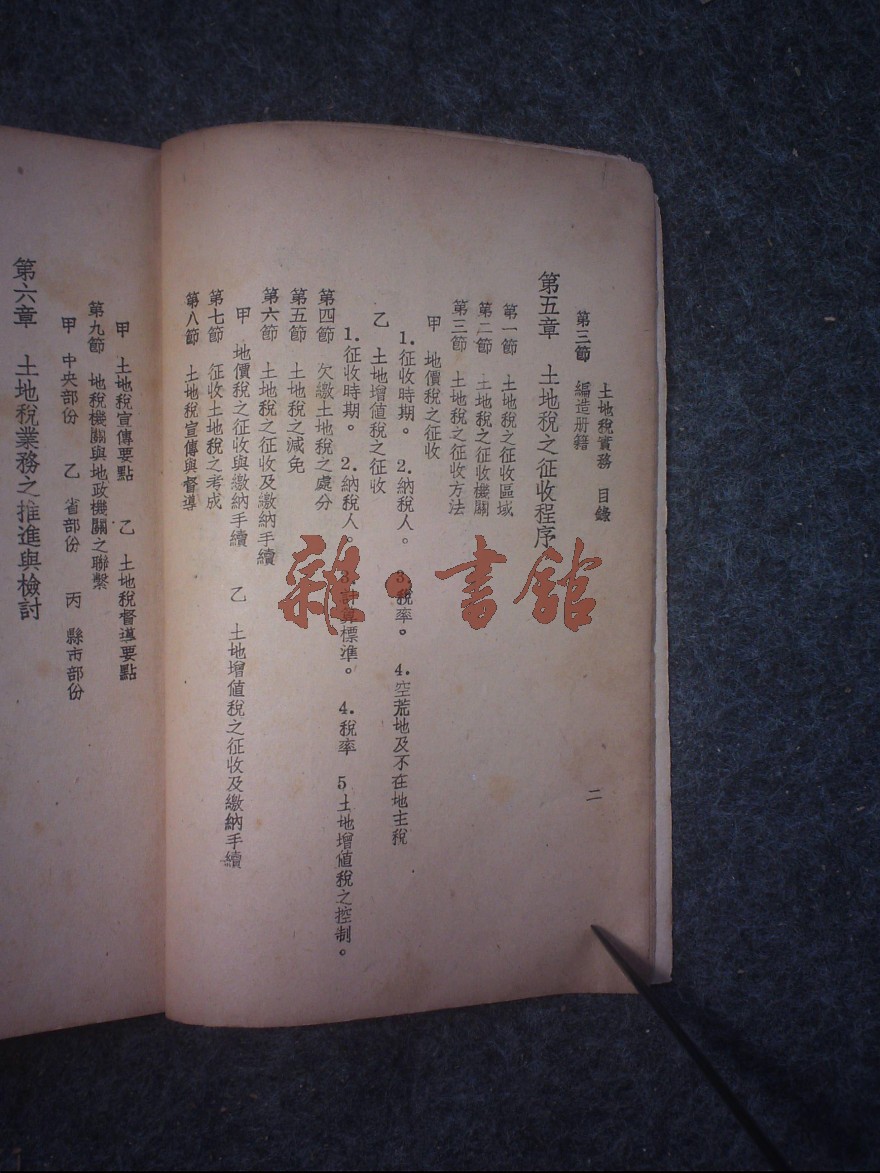 土地稅實務 目錄
二
第三節 編造册籍
第五章 土地稅之征收程序
第一節 土地稅之征收區域
第二節 土地稅之征收機關
第三節 土地稅之征收方法
甲 地價稅之征收
1.征收時期。 2.納稅人。 3.稅率。 4.空荒地及不在地主稅
乙 土地增値稅之征收
1.征收時期。 2.納稅人。 3.計算標準。 4.稅率 5土地增値稅之控制。
第四節 欠繳土地稅之處分
第五節 土地稅之減免
第六節 土地稅之征收及繳納手續
甲 地價稅之征收與繳納手續 乙 土地增値稅之征收及繳納手續
第七節 征收土地稅之考成
第八節 土地稅宣傳與督導
甲 土地稅宣傳要點 乙 土地稅督導要點
第九節 地稅機關與地政機關之聯繫
甲 中央部份 乙 省部份 丙 縣市部份
第六章 土地稅業務之推進與檢討
雜·書館